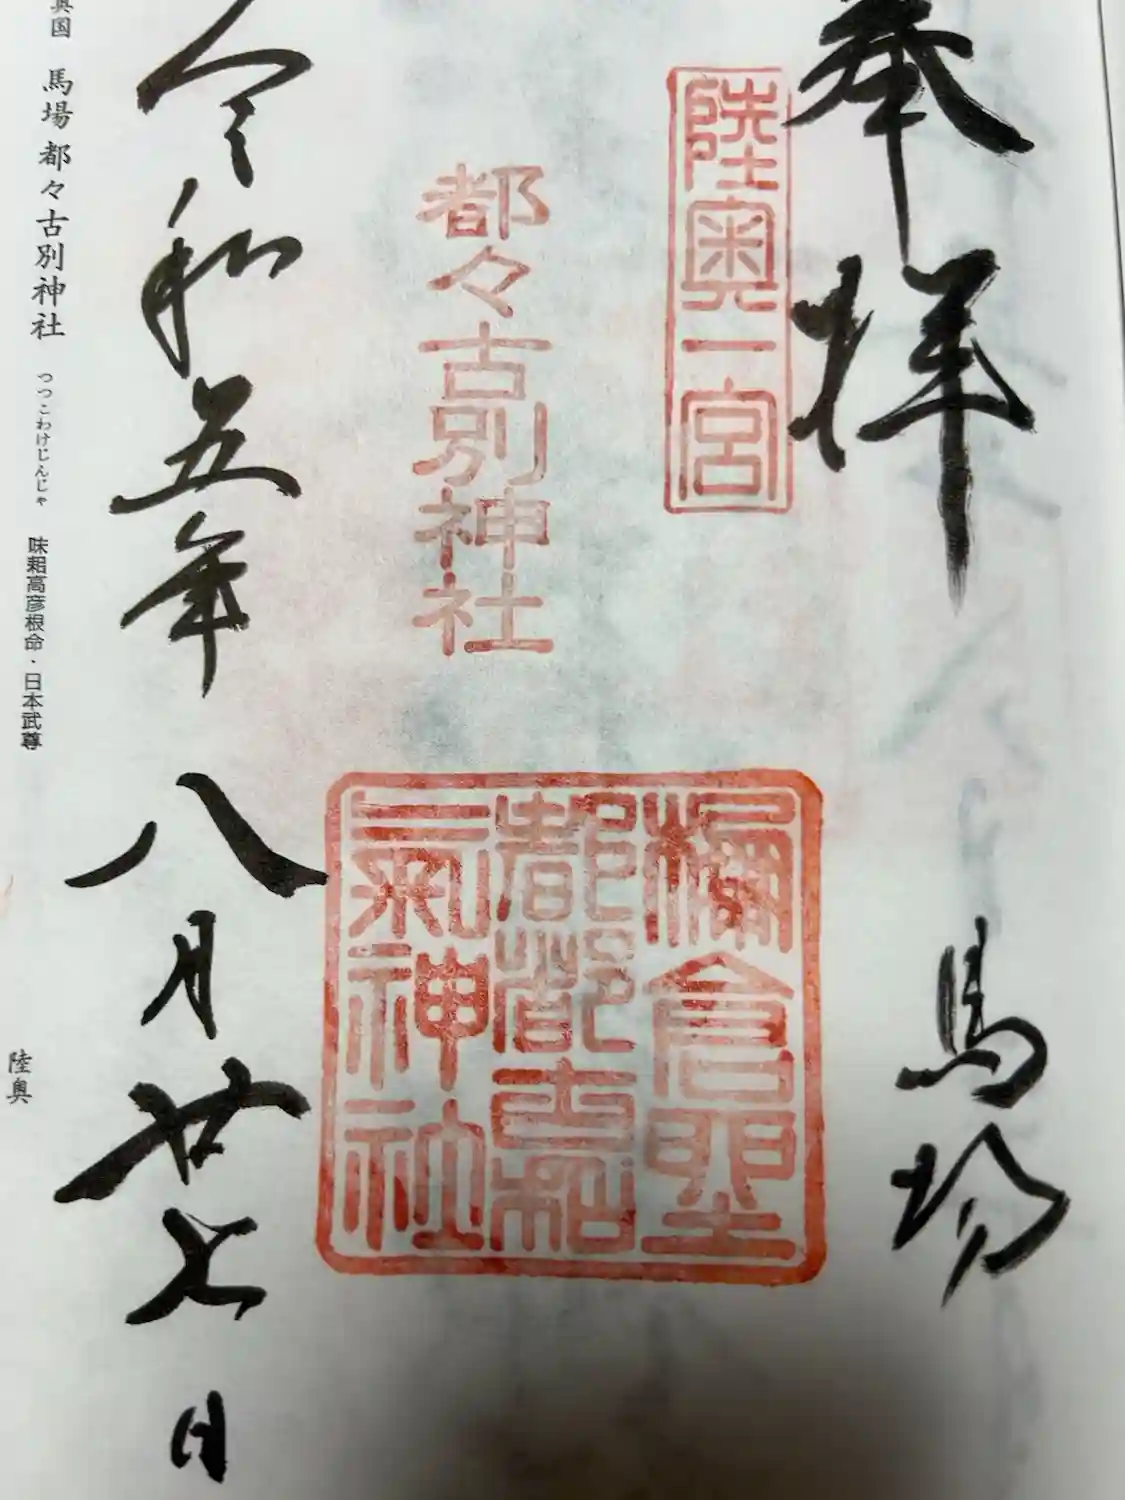 奉拝
馬場
陸奥一宮
都々古別神社
都都古和
氣神社
令和五年八月廿七日
奥国 馬場都々古別神社 つつこわけじんじゃ 味耜高彦根命・日本武尊
陸奥